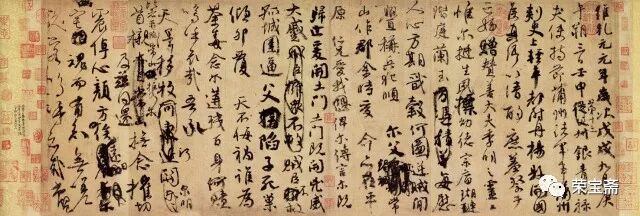 維乾元元年歲次戊戌九月庚
午朔三日壬申第十三叔銀青光祿
夫使持節蒲州諸軍事蒲州
刺史上輕車都尉丹楊縣開國
侯真卿以清酌庶羞祭于
亡姪贈贊善大夫季明之靈曰
惟爾挺生夙標幼德宗廟瑚璉
階庭蘭玉每慰
人心方期戩穀何圖逆賊間
釁稱兵犯順爾父竭誠常
山作郡余時受命亦在平
原仁兄愛我俾爾傳言爾既
歸止爰開土門土門既開凶威
大蹙賊臣不救
孤城圍逼父陷子死巢
傾卵覆天不悔禍誰為
荼毒念爾遘殘百身何贖
嗚乎哀哉吾承
天澤移牧河關泉明
首櫬及茲同還撫念摧切
震悼心顏方俟遠日
魂而有知無嗟
荣宝斋